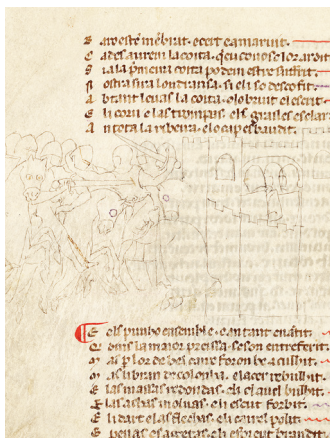 B aro este mēbrat. ⁊ cert ⁊ amaruit.
C ades aurem la coita. q̃u conosc loz ardit
S i ala p̃meira coita podem estre suffrit.
N ostra sira lonransa. si eli so descofit.
A btant leuas la coita. ⁊ lo bruit ⁊ lescrit.
E li corn e las trompas. els grailes esclar
A n tota la ribeira. ⁊ lo cap esbaudit.
E els punho ensemble. ⁊ an tant enātit.
Q dins la maior preissa. se son entreferit.
M as p̃ lor de belcaire foron be aculhit.
M as li bran de colonha. ⁊ lacer rebulhit.
E las massas redondas. els bulhit.
E las asbas moluas. els escut forbit.
E li dart e las flechas. els cairel polit.
E penas ⁊ sagetas. els espieut brandit.